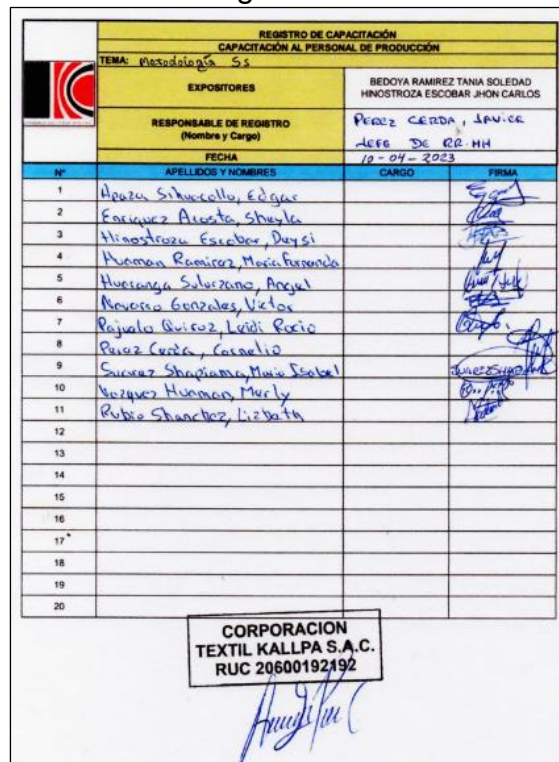 REGISTRO DE CAPACITACIÓN
CAPACITACIÓN AL PERSONAL DE PRODUCCIÓN
TEMA: Metodología 5s
EXPOSITORES
BEDOYA RAMIREZ TANIA SOLEDAD
HINOSTROZA ESCOBAR JHON CARLOS
RESPONSABLE DE REGISTRO
(Nombre y Cargo)
PEREZ CERDA, JAVIER
JEFE DE RR.HH
FECHA
10-04-2023
N° APELLIDOS Y NOMBRES CARGO FIRMA
1 Apaza Sihuccollo, Edgar
2 Enriquez Acosta, Sheyla
3 Hinostroza Escobar, Deysi
4 Huaman Ramirez, Maria Fernanda
5 Huaranga Solorzano, Angel
6 Navarro Gonzales, Victor
7 Pajualo Quiroz, Leidi Rocio
8 Perez Cerda, Cornelio
9 Suarez Shapiama, Maria Isabel
10 Vazquez Huaman, Marly
11 Rubio Shanchez, Lizbeth
12
13
14
15
16
17
18
19
20
CORPORACION
TEXTIL KALLPA S.A.C.
RUC 20600192192